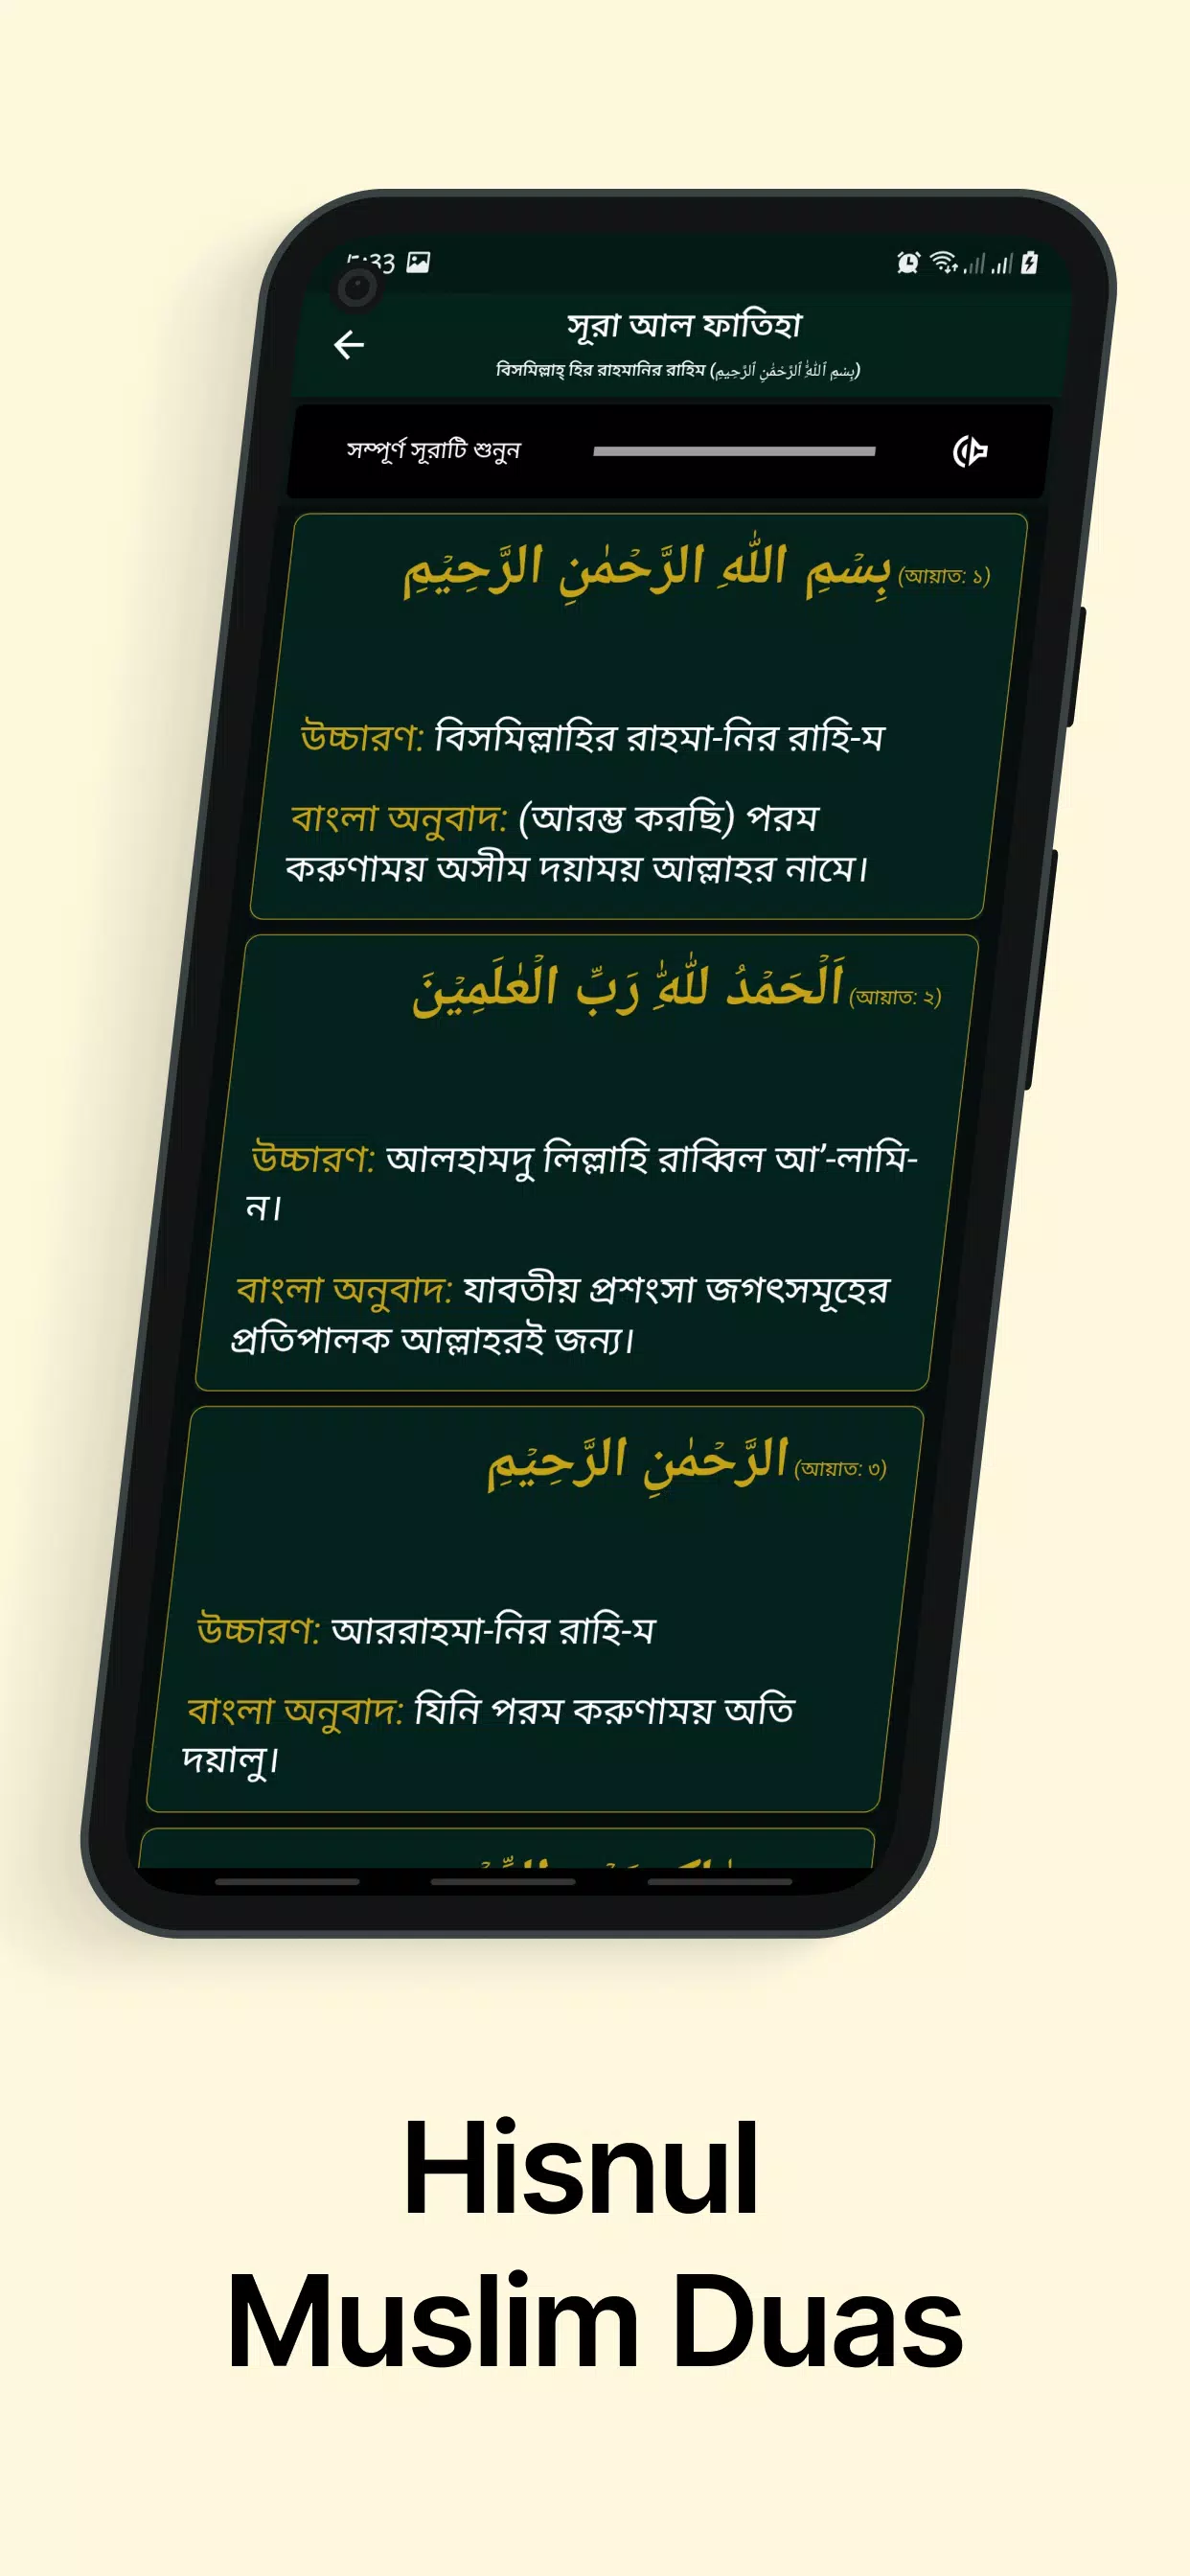 সূরা আল ফাতিহা
বিসমিল্লাহ্ হির রাহমানির রাহিম (بِسْمِ ٱللَّٰهِ ٱلرَّحْمَٰنِ ٱلرَّحِيمِ)
সম্পূর্ণ সূরাটি শুনুন
بِسْمِ اللّٰهِ الرَّحْمٰنِ الرَّحِيْمِ (আয়াত: ১)
উচ্চারণ: বিসমিল্লাহির রাহমা-নির রাহি-ম
বাংলা অনুবাদ: (আরম্ভ করছি) পরম
করুণাময় অসীম দয়াময় আল্লাহর নামে।
اَلْحَمْدُ لِلّٰهِ رَبِّ الْعٰلَمِيْنَ (আয়াত: ২)
উচ্চারণ: আলহামদু লিল্লাহি রাব্বিল আ’-লামি-
ন।
বাংলা অনুবাদ: যাবতীয় প্রশংসা জগৎসমূহের
প্রতিপালক আল্লাহরই জন্য।
الرَّحْمٰنِ الرَّحِيْمِ (আয়াত: ৩)
উচ্চারণ: আররাহমা-নির রাহি-ম
বাংলা অনুবাদ: যিনি পরম করুণাময় অতি
দয়ালু।
Hisnul
Muslim Duas